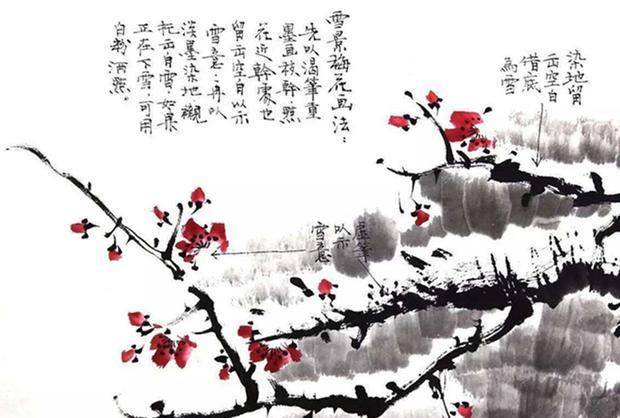 雪景梅花画法：
先以渴筆重
墨画枝幹.點
花近幹處也
留出空白以示
雪意.再以
淡墨染地襯
托出白雪.如果
正在下雪.可用
白粉洒點。
染地留
出空白
借底
為雪
虛筆
以示
雪意